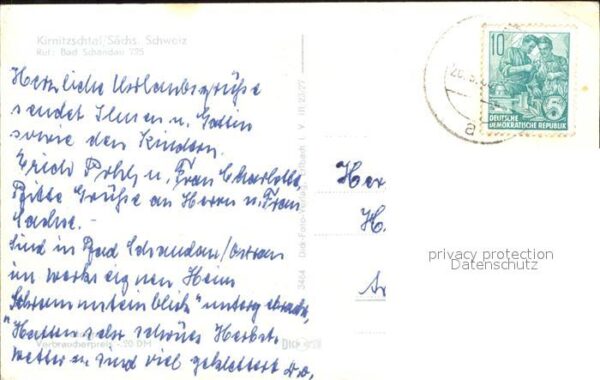 Kirnitzschtal/Sächs. Schweiz
Ruf: Bad Schandau 725
Herzliche Urlaubsgrüße
sendet Ihnen u. Gattin
sowie den Kindern.
Erich Pohl u. Frau Charlotte,
Bitte Grüße an Herrn u. Frau
Sachse.-
Sind in Bad Schandau/Ostrau
im werkseignen Heim
Schrammsteinblick" untergebracht,
"Hatten sehr schönes Herbst-
wetter u. sind viel geklettert
Verbraucherpreis -.20 DM
3464 Dick-Foto-Verlag, Erlbach i. V.
Dick
10
DEUTSCHE
DEMOKRATISCHE REPUBLIK
5
a
Her
H.
privacy protection
Datenschutz